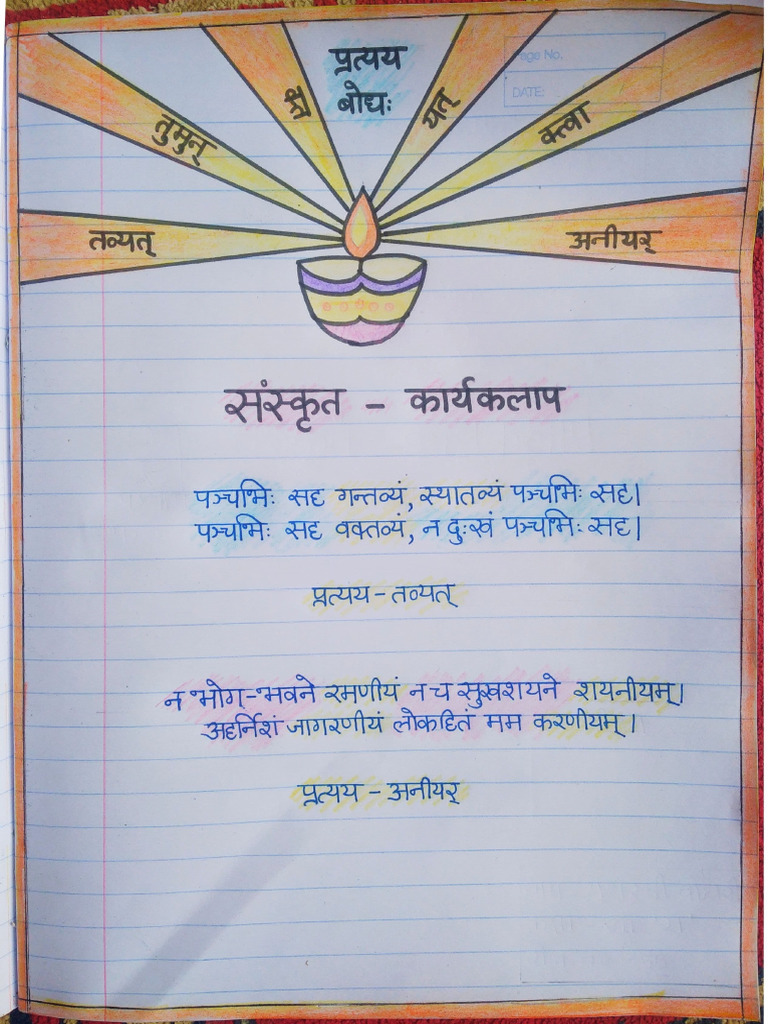 प्रत्यय
बोधः
Page No.
DATE:
तव्यत्
तुमुन्
क्त
यत्
क्त्वा
अनीयर्
संस्कृत - कार्यकलाप
पञ्चभिः सह गन्तव्यं, स्थातव्यं पञ्चभिः सह।
पञ्चभिः सह वक्तव्यं, न दुःखं पञ्चभिः सह।
प्रत्यय - तव्यत्
न भोग-भवने रमणीयं न च सुखशयने शयनीयम्।
अहर्निशं जागरणीयं लोकहितं मम करणीयम्।
प्रत्यय - अनीयर्